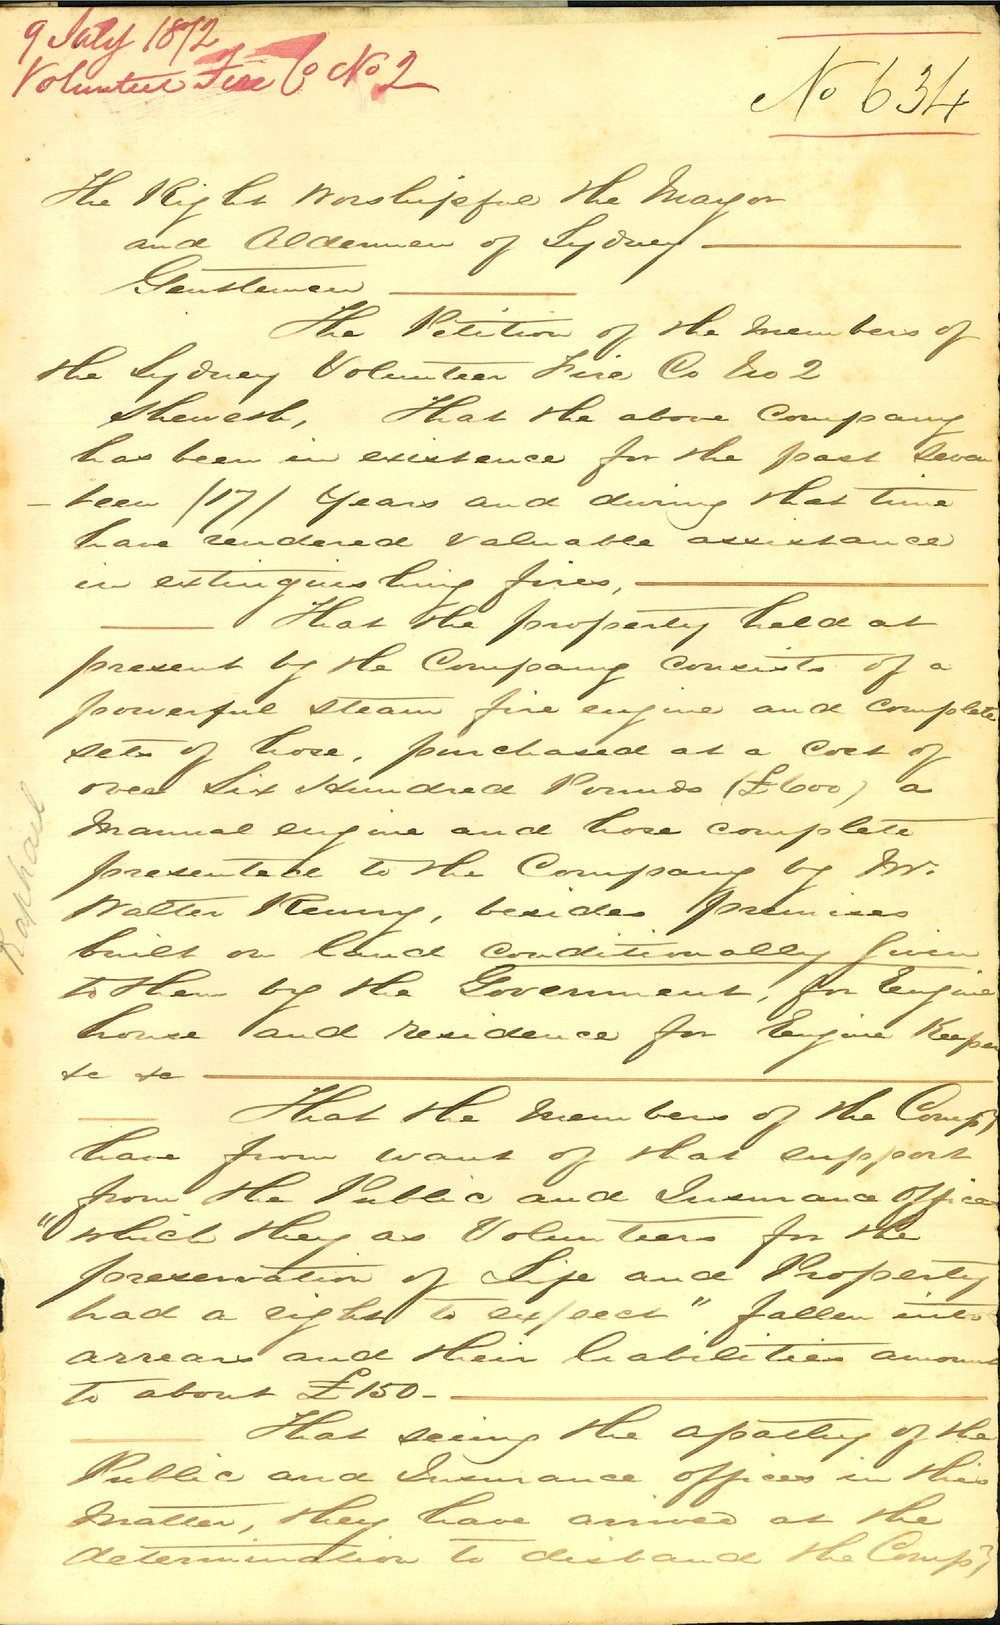 9 July 1872
Volunteer Fire Co No 2
No 634
The Right Worshipful the Mayor
and Aldermen of Sydney
Gentlemen
The Petition of the Members of
the Sydney Volunteer Fire Co No 2
Sheweth, That the above Company
has been in existence for the past Seven
-teen /17/ Years and during that time
have rendered valuable assistance
in extinguishing fires,
That the property held at
present by the Company consists of a
powerful steam fire engine and complete
sets of hose, purchased at a cost of
over Six Hundred Pounds (£600) a
Manual engine and hose complete
presented to the Company by Mr.
Walter Renny, besides premises
built on land conditionally given
to them by the Government, for Engine
house and residence for Engine Keeper
&c &c
That the Members of the Compy
have from want of that support
from the Public and Insurance Offices
"which they as Volunteers for the
preservation of Life and Property
had a right to expect" fallen into
arrears and their liabilities amount
to about £150-
That seeing the apathy of the
Public and Insurance offices in this
Matter, they have arrived at the
determination to disband the Compy
Raphael